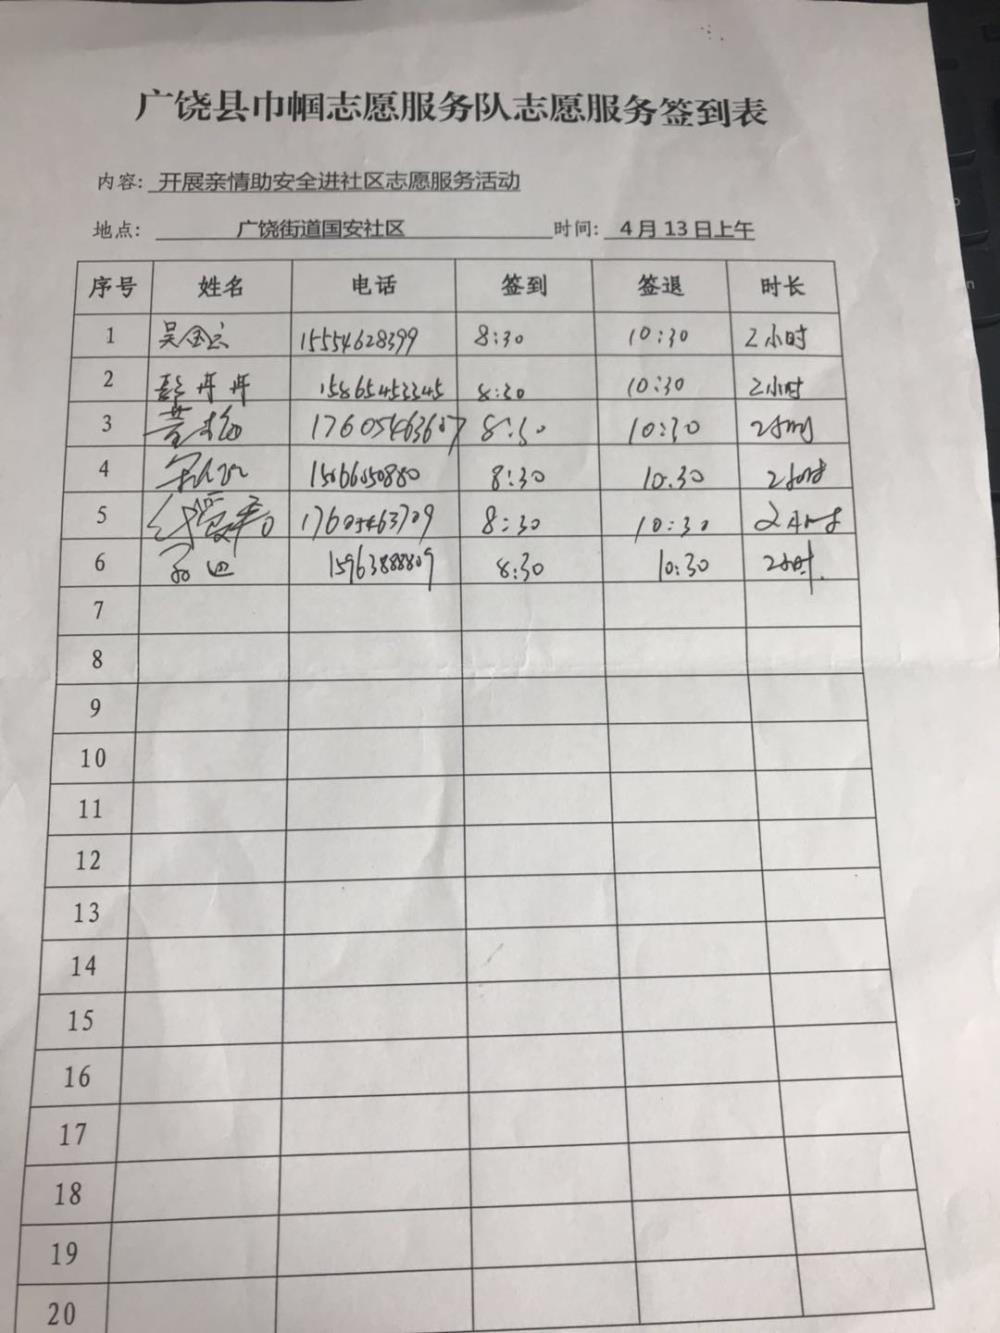 广饶县巾帼志愿服务队志愿服务签到表
内容: 开展亲情助安全进社区志愿服务活动
地点: 广饶街道国安社区 时间: 4月13日上午
序号 姓名 电话 签到 签退 时长
1 吴金云 15554628399 8:30 10:30 2小时
2 彭丹丹 15865453345 8:30 10:30 2小时
3 17605463607 8:30 10:30 2小时
4 15066050880 8:30 10.30 2小时
5 17605463709 8:30 10:30 2小时
6 15963888809 8:30 10:30 2小时.
7
8
9
10
11
12
13
14
15
16
17
18
19
20